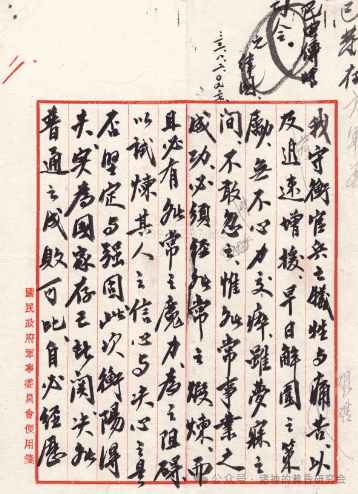 我守衡官兵之犧牲与痛苦以
及迅速增援早日解圍之策
勵無不心力交瘁雖夢寐之
間不敢忽之惟非常事業之
成功必須經非常之鍛煉而
且必有非常之魔力為之阻礙
以試煉其人之信心与決心之是
否堅定与強固此次衡陽得
失實為國家存亡所關決非
普通之成敗可比自必經歷
國民政府軍事委員會便用箋
公众号 · 诸神的黄昏研究会